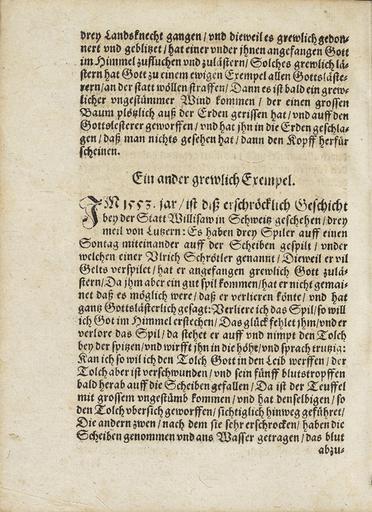 drey Landsknecht gangen / vnd dieweil es grewlich gedon-
nert vnd geblitzet / hat einer vnder jhnen angefangen Gott
im Himmel zufluchen vnd zulästern / Solches grewlich lä-
stern hat Gott zu einem ewigen Exempel allen Gottsläste-
rern / an der statt wöllen straffen / Dann es ist bald ein grew-
licher vngestümmer Wind kommen / der einen grossen
Baum plötzlich auß der Erden gerissen hat / vnd auff den
Gottslesterer geworffen / vnd hat jhn in die Erden geschla-
gen / daß man nichts gesehen hat / dann den Kopff herfür
scheinen.
Ein ander grewlich Exempel.
IM 1553. jar / ist diß erschröcklich Geschicht
bey der Statt Willisaw in Schweitz geschehen / drey
meil von Lutzern: Es haben drey Spiler auff einen
Sontag miteinander auff der Scheiben gespilt / vnder
welchen einer Vlrich Schrötler genannt / Dieweil er vil
Gelts verspilet / hat er angefangen grewlich Gott zulä-
stern / Da jhm aber ein gut spil kommen / hat er nicht gemai-
net daß es möglich were / daß er verlieren könte / vnd hat
gantz Gottslästerlich gesagt: Verliere ich das Spil / so will
ich Got im Himmel erstechen / Das glück fehlet jhm / vnd er
verlore das Spil / da stehet er auff vnd nimpt den Tolch
bey der spitzen / vnd wirfft jhn in die höhe / vnd sprach trutzig:
Kan ich so wil ich den Tolch Gott in den Leib werffen / der
Tolch aber ist verschwunden / vnd sein fünff blutstropffen
bald herab auff die Scheiben gefallen / Da ist der Teuffel
mit grossem vngestümb kommen / vnd hat denselbigen / so
den Tolch vbersich geworffen / sichtiglich hinweg geführet /
Die andern zwen / nach dem sie sehr erschrocken / haben die
Scheiben genommen vnd ans Wasser getragen / das blut
abzu-